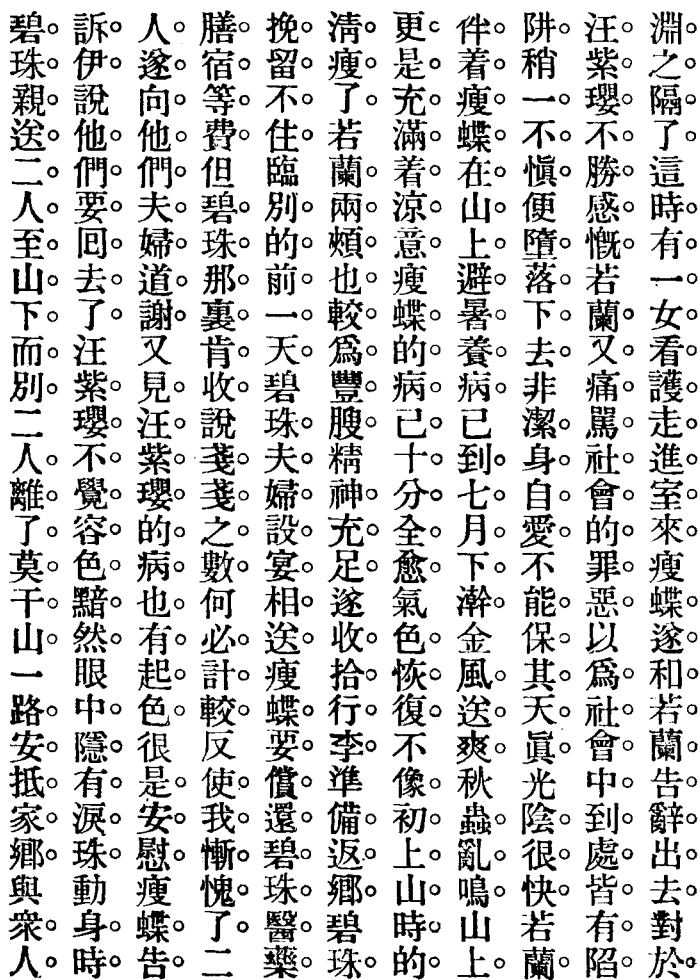 淵之隔了這時有一女看護走進室來瘦蝶遂和若蘭告辭出去對於
汪紫瓔不勝感慨若蘭又痛罵社會的罪惡以爲社會中到處皆有陷
阱稍一不愼便墮落下去非潔身自愛不能保其天眞光陰很快若蘭
伴着瘦蝶在山上避暑養病已到七月下澣金風送爽秋蟲亂鳴山上
更是充滿着涼意瘦蝶的病已十分全愈氣色恢復不像初上山時的
淸瘦了若蘭兩頰也較爲豐腴精神充足遂收拾行李準備返鄕碧珠
挽留不住臨別的前一天碧珠夫婦設宴相送瘦蝶要償還碧珠醫藥
膳宿等費但碧珠那裏肯收說戔戔之數何必計較反使我慚愧了二
人遂向他們夫婦道謝又見汪紫瓔的病也有起色很是安慰瘦蝶告
訴伊說他們要囘去了汪紫瓔不覺容色黯然眼中隱有淚珠動身時
碧珠親送二人至山下而別二人離了莫干山一路安抵家鄕與衆人